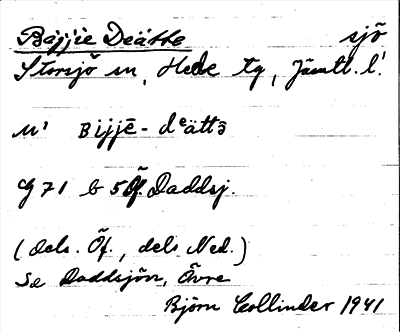 Bájjie Deätte sjö
Storsjö sn, Hede tg, Jämtl. l.
M' Bijjē-deättə
G 71 b 5 Öf. Daddsj.
(dels. Öf., dels Ned.)
Se Daddsjön, Övre
Björn Collinder 1941